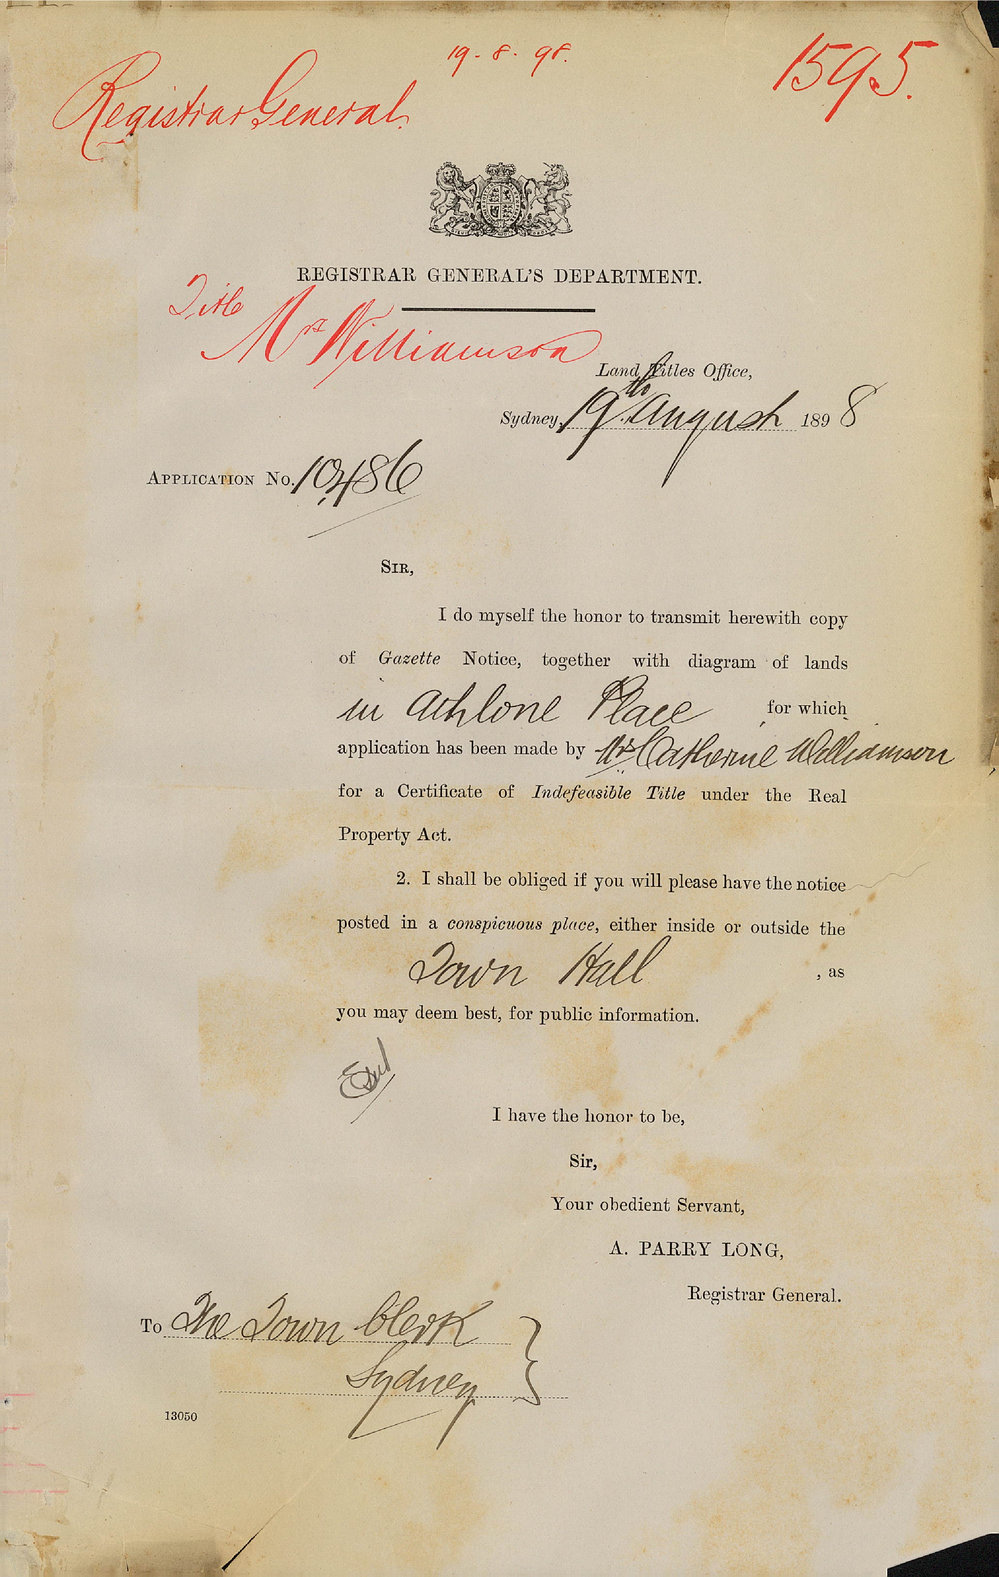 19-8-98.
1595.
Registrar General.
REGISTRAR GENERAL'S DEPARTMENT.
Title
Mrs Williamson
Land Titles Office,
Sydney, 19th August 1898
APPLICATION No. 10,486
SIR,
I do myself the honor to transmit herewith copy
of Gazette Notice, together with diagram of lands
in Athlone Place for which
application has been made by Mrs Catherine Williamson
for a Certificate of Indefeasible Title under the Real
Property Act.
2. I shall be obliged if you will please have the notice
posted in a conspicuous place, either inside or outside the
Town Hall , as
you may deem best, for public information.
I have the honor to be,
Sir,
Your obedient Servant,
A. PARRY LONG,
Registrar General.
To The Town Clerk
Sydney
13050